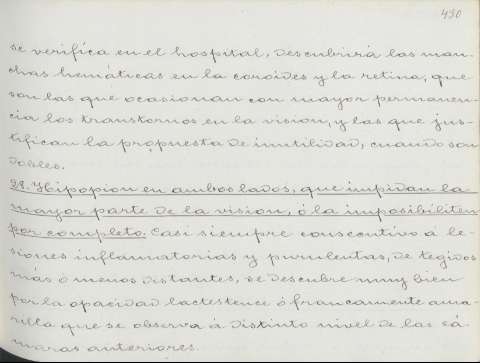 430
se verifica en el hospital, descubrirá las man-
chas hemáticas en la coroides y la retina, que
son las que ocasionan con mayor permanen-
cia los transtornos en la vision, y las que jus-
tifican la propuesta de inutilidad, cuando son
dobles.
28. Hipopion en ambos lados, que impidan la
mayor parte de la vision, ó la imposibiliten
por completo. Casi siempre consecutivo á le-
siones inflamatorias y purulentas, de tegidos
más ó menos distantes, se descubre muy bien
por la opacidad lactescente ó francamente ama-
rilla que se observa á distinto nivel de las cá-
maras anteriores.